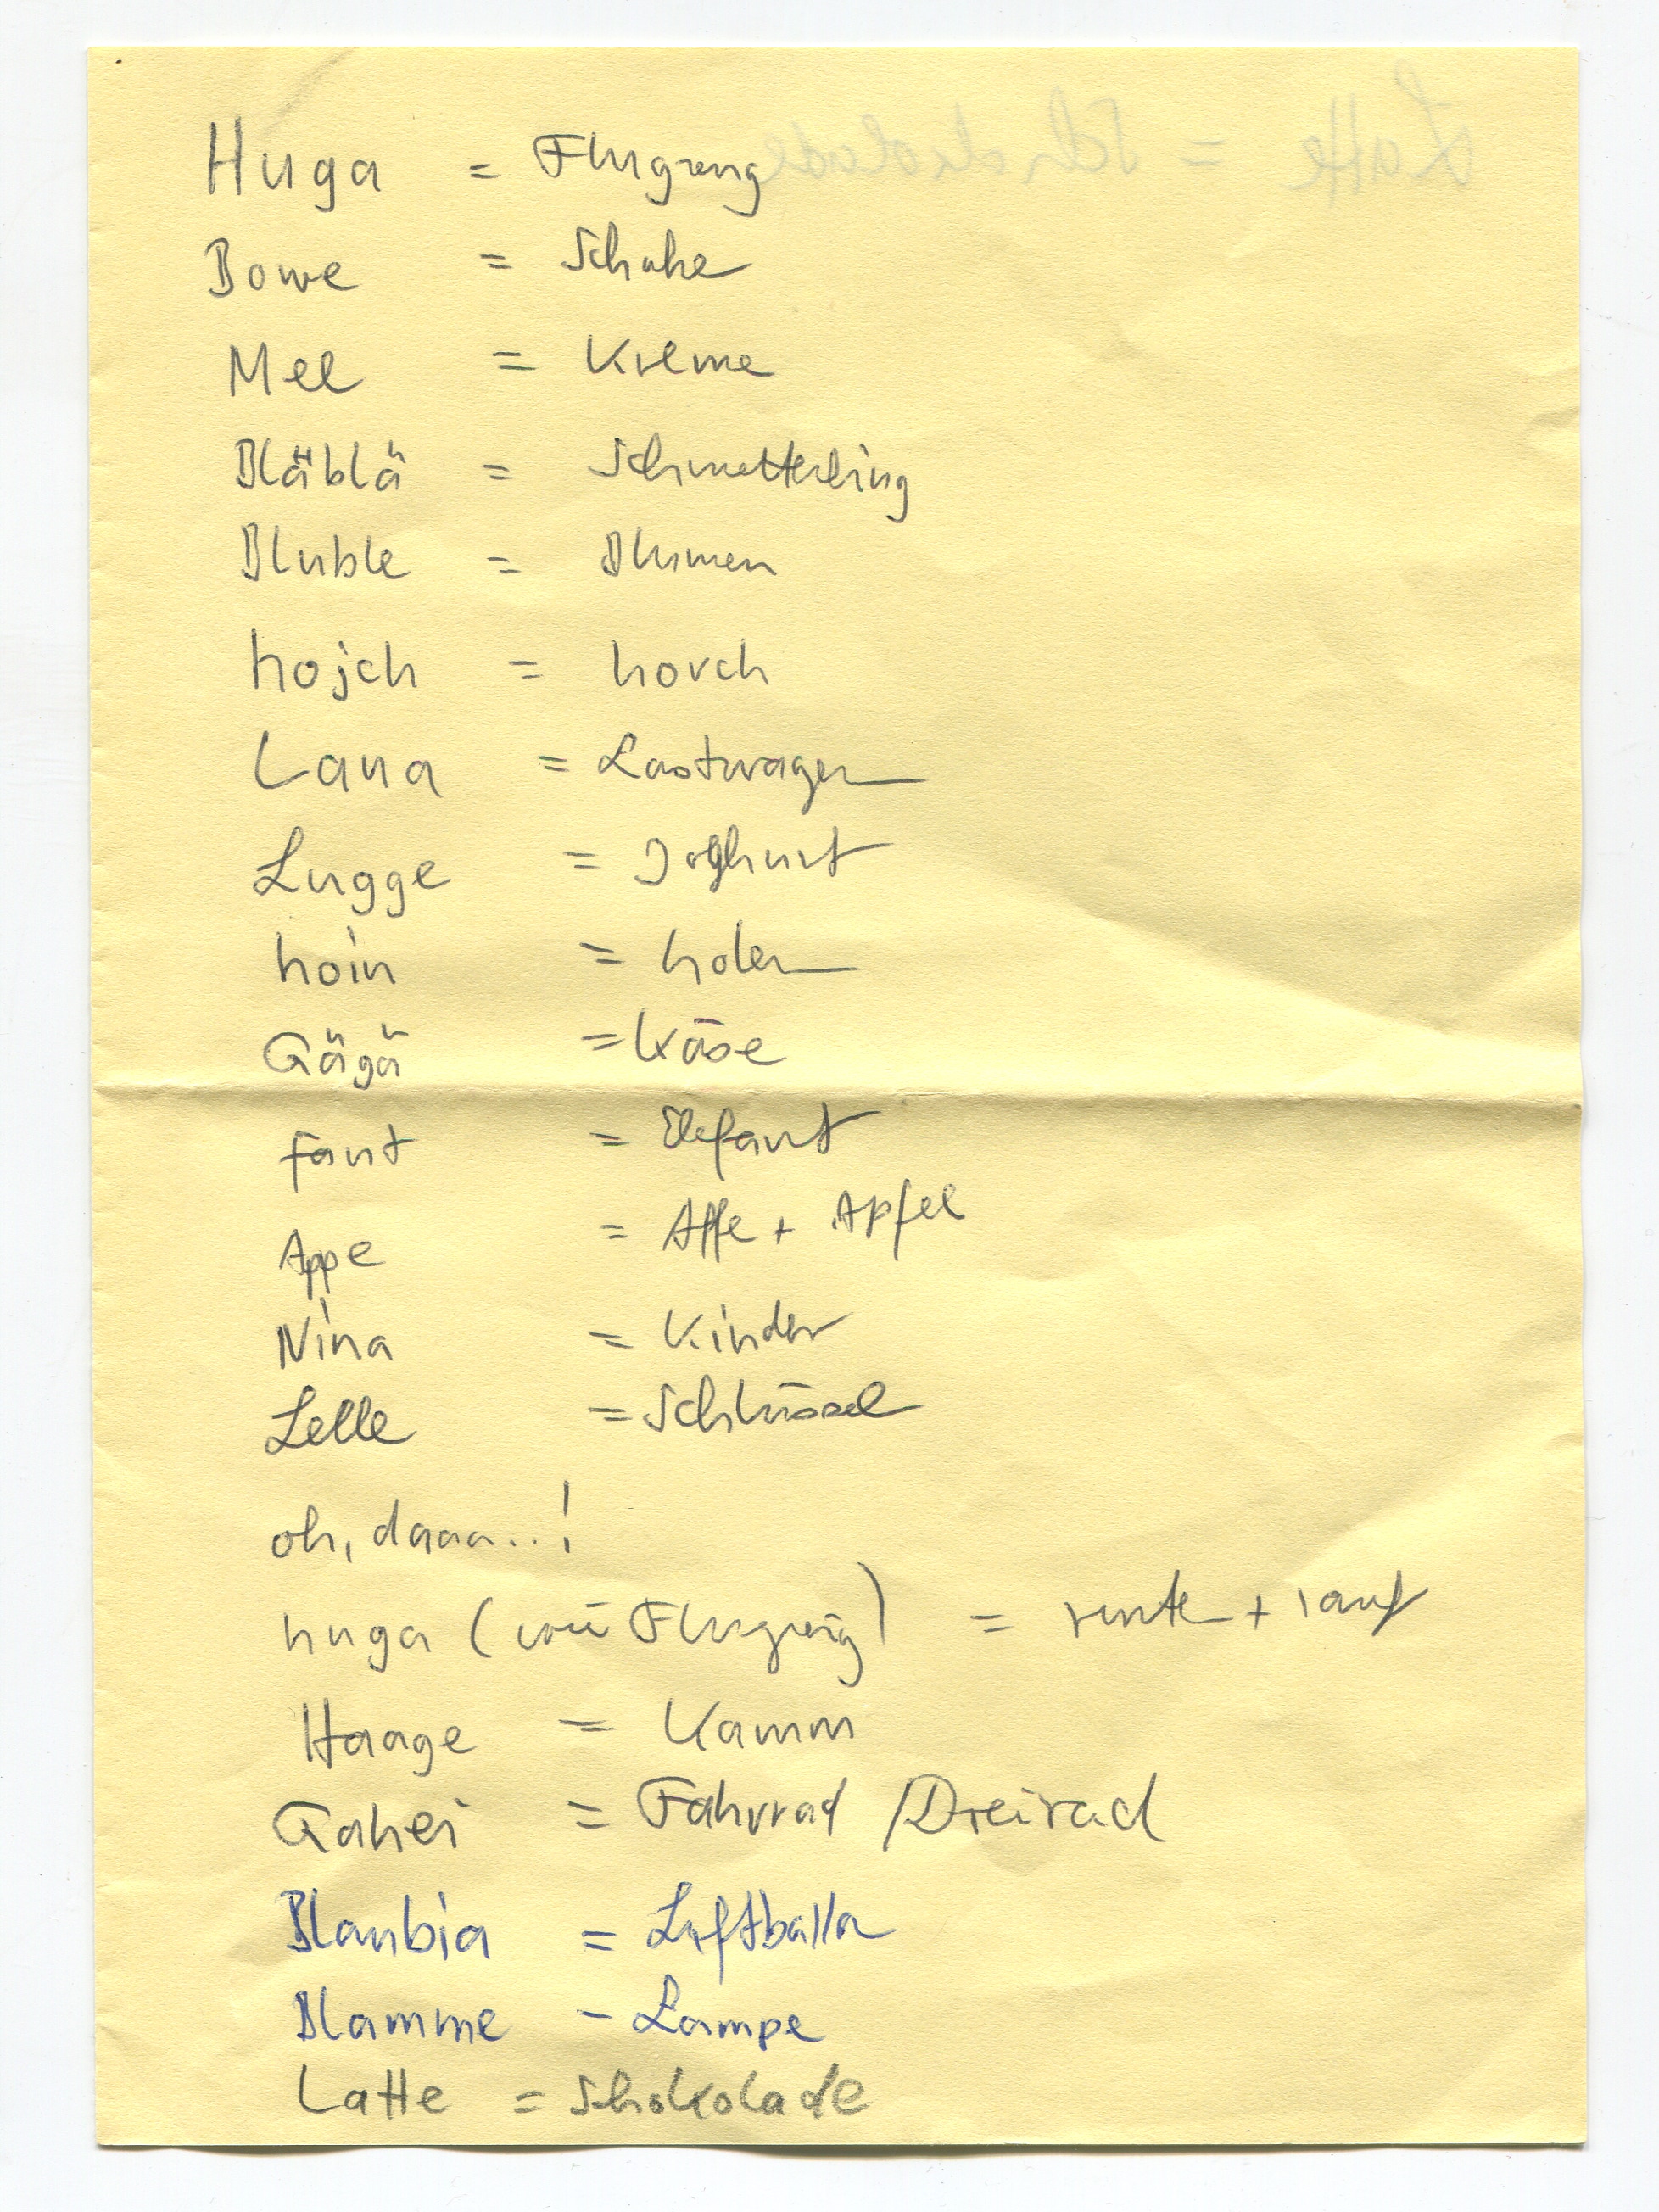 Huga = Flugzeug
Bowe = Schuhe
Mee = Kreme
Bläblä = Schmetterling
Bluble = Blumen
hojch = horch
Lana = Lastwagen
Lugge = Joghurt
hoin = holen
Gägä = Käse
Fant = Elefant
Appe = Affe + Apfel
Nina = Kinder
Lelle = Schlüssel
oh, daaa..!
huga (wie Flugzeug) = runter + rauf
Haage = Kamm
Gahei = Fahrrad / Dreirad
Blaubia = Luftballon
Blamme - Lampe
Latte = Schokolade